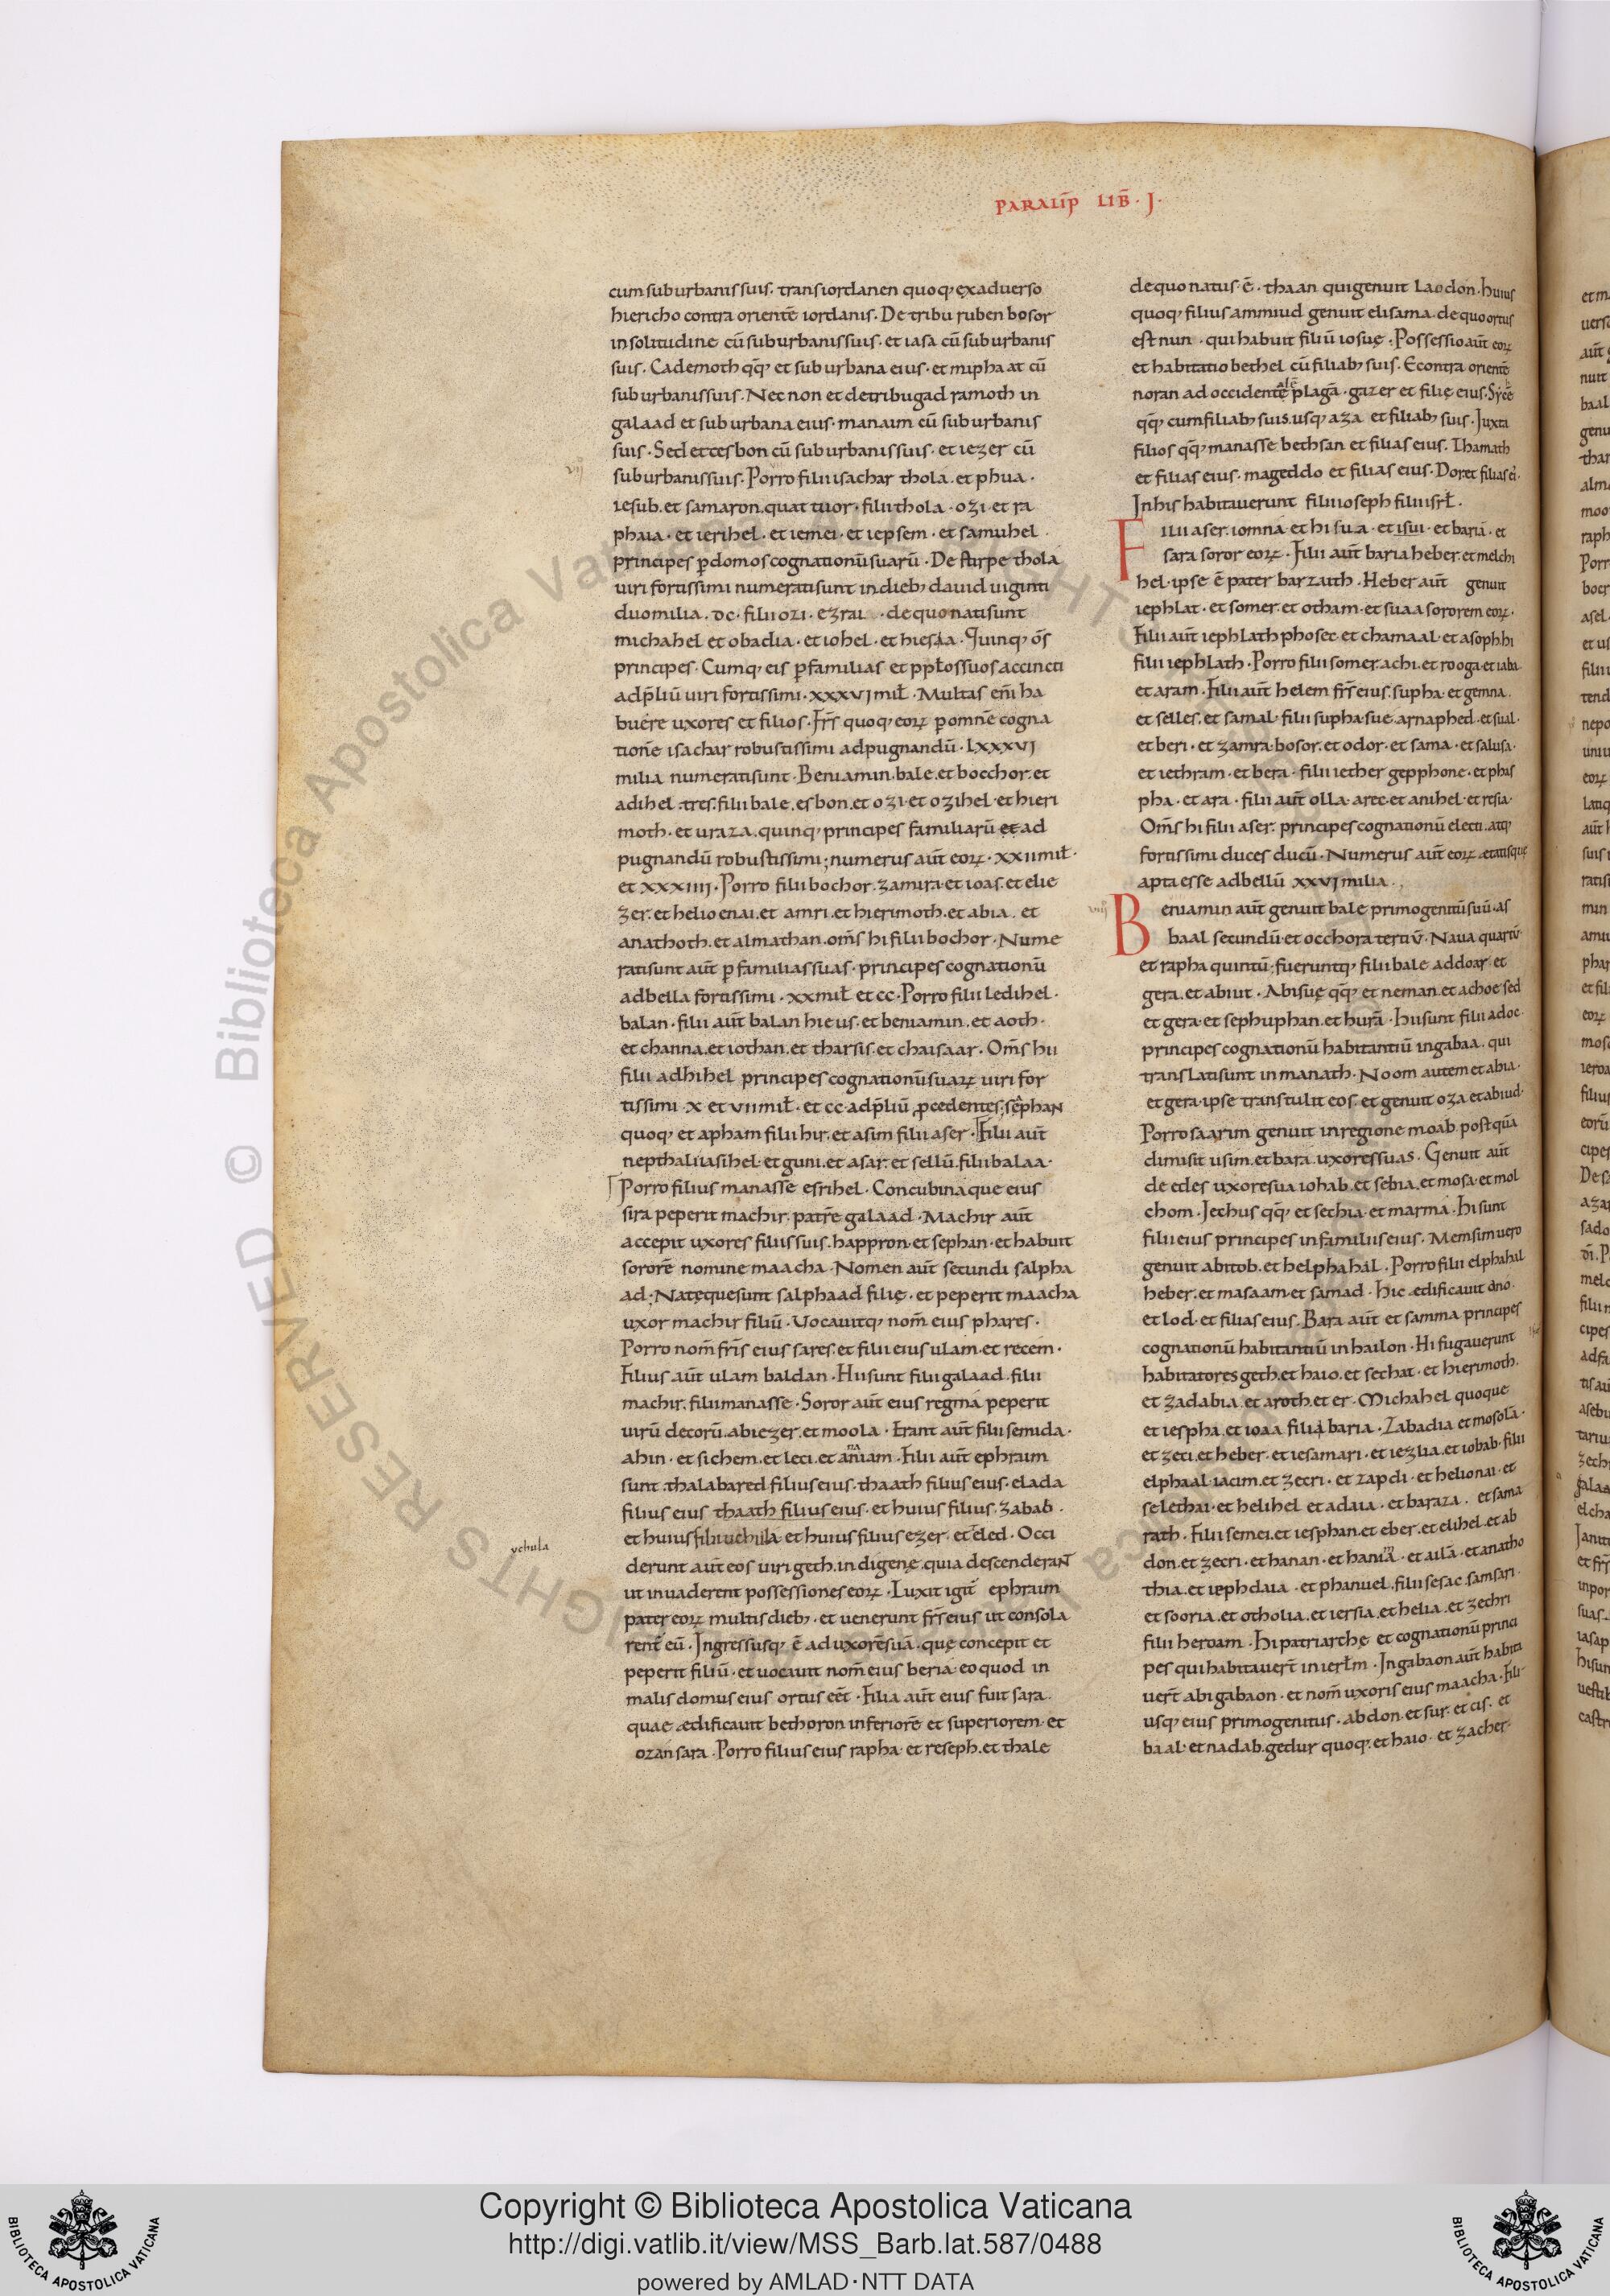 PARALIP̄ LIB̄ · J ·
cum suburbanis suis. trans iordanen quoq; ex aduerso
hiericho contra orientē iordanis. De tribu ruben bosor
in solitudine cū suburbanis suis. et iasa cū suburbanis
suis. Cademoth qq; et suburbana eius. et miphaat cū
suburbanis suis. Nec non et de tribu gad ramoth in
galaad et suburbana eius. manaim cū suburbanis
suis. Sed et esbon cū suburbanis suis. et iezer cū
suburbanis suis. Porro filii isachar thola. et phua.
iesub. et samaron. quattuor. filii thola. ozi. et ra
phaia. et ierihel. et iemei. et iepsem. et samuhel
principes p domos cognationū suarū. De stirpe thola
uiri fortissimi numerati sunt in dieb; dauid uiginti
duo milia. dc. filii ozi. ezrai. de quo nati sunt
michahel et obadia. et iohel. et hiesia. Quinq; om̄s
principes. Cumq; eis p familias et pplos suos accincti
ad p̄liū uiri fortissimi. xxxvj mil. Multas em̄ ha
buere uxores et filios. Fr̄s quoq; eoꝝ p omnē cogna
tionē isachar robustissimi ad pugnandū. lxxxvj
milia numerati sunt. Beniamin. bale. et bocchor. et
adihel. tres. filii bale. esbon. et ozi. et ozihel. et hieri
moth. et uraza. quinq; principes familiarū et ad
pugnandū robustissimi; numerus aūt eoꝝ. xxii mil.
et xxxiiij. Porro filii bochor. zamira. et ioas. et elie
zer. et helioenai. et amri. et hierimoth. et abia. et
anathoth. et almathan. om̄s hi filii bochor. Nume
rati sunt aūt p familias suas. principes cognationū
ad bella fortissimi. xx mil et cc. Porro filii ledihel.
balan. filii aūt balan hieus. et beniamin. et aoth.
et channa. et iothan. et tharsis. et chaisaar. Om̄s hii
filii adhihel principes cognationū suaꝝ uiri for
tissimi. x et vii mil. et cc. ad p̄liū pcedentes; sephan
quoq; et apham filii hir. et asim filii aser. Filii aūt
nepthali iasihel. et guni. et asar. et sellū. filii balaa.
Porro filius manasse esrihel. Concubinaque eius
sira peperit machir. patrē galaad. Machir aūt
accepit uxores filiis suis. happron. et sephan. et habuit
sororē nomine maacha. Nomen aūt secundi salpha
ad; Natęque sunt salphaad filię. et peperit maacha
uxor machir filiū. Uocauitq; nom̄ eius phares.
Porro nom̄ fr̄is eius sares. et filii eius ulam. et recem.
Filius aūt ulam baldan. Hii sunt filii galaad. filii
machir. filii manasse. Soror aūt eius regina peperit
uirū decorū. abiezer. et moola. Erant aūt filii semida.
ahin. et sichem. et leci. et aniam. Filii aūt ephraim
sunt. thala bared filius eius. thaath filius eius. elada
filius eius thaath filius eius. et huius filius. zabad.
et huius filii uchila et huius filius ezer. et eled. Occi
uchula
derunt aūt eos uiri geth. indigenę. quia descenderant
ut inuaderent possessiones eoꝝ. Luxit igit̄ ephraim
pater eoꝝ multis dieb;. et uenerunt fr̄s eius ut consola
rent̄ eū. Ingressusq; ē ad uxorē suā. quę concepit et
peperit filiū. et uocauit nom̄ eius beria. eo quod in
malis domus eius ortus eēt. Filia aūt eius fuit sara.
quae ædificauit bethoron inferiorē et superiorem. et
ozansara. Porro filius eius rapha. et reseph. et thale
de quo natus ē. thaan qui genuit laodon. huius
quoq; filius ammiud genuit elisama. de quo ortus
est nun. qui habuit filiū iosuę. Possessio aūt eoꝝ
et habitatio bethel cū filiab; suis. E contra orientē
noran ad occidentalē plagā. gazer et filię eius. Sychē
qq; cum filiab; suis. usq; aza et filiab; suis. Juxta
filios qq; manasse bethsan et filias eius. Thamath
et filias eius. mageddo et filias eius. Dor. et filias ei'.
In his habitauerunt filii ioseph filii isrl.
Filii aser. iomna. et hisua. et isui. et baria. et
sara soror eoꝝ. Filii aūt baria heber. et melchi
hel. ipse ē pater barzaith. Heber aūt genuit
iephlat. et somer. et otham. et suaa sororem eoꝝ.
Filii aūt iephlath phosec. et chamaal. et asoph. hi
filii iephlath. Porro filii somer. achi. et rooga. et iaba
et aram. Filii aūt helem fr̄s eius. supha. et gemna.
et selles. et samal. filii supha. sue. arnaphed. et sual.
et beri. et zamra. bosor. et odor. et sama. et salusa.
et iethram. et bera. filii iether gepphone. et phas
pha. et ara. filii aūt olla. aree. et anihel. et resia.
Om̄s hi filii aser. principes cognationū electi. atq;
fortissimi duces ducū. Numerus aūt eoꝝ ætatisque
apta esse ad bellū xxvj milia.
Beniamin aūt genuit bale primogenitū suū. as
baal secundū. et occhora tertiū. Naua quartū
et rapha quintū; fueruntq; filii bale addoar. et
gera. et abiut. Abisuę qq; et neman. et achoe sed
et gera. et sephuphan. et hurā. Hi sunt filii adoc.
principes cognationū habitantiū in gabaa. qui
translati sunt in manath. Noom autem et abia.
et gera. ipse transtulit eos. et genuit oza et abiud.
Porro saarim genuit in regione moab. postquā
dimisit usim. et bara. uxores suas. Genuit aūt
de edes uxore sua iohab. et sebia. et mosa. et mol
chom. Jechus qq; et sechia. et marma. Hi sunt
filii eius principes in familiis eius. Memsim uero
genuit abitob. et helphahal. Porro filii elphahal
heber. et masaam. et samad. Hic ædificauit ono.
et lod. et filias eius. Bara aūt et samma principes
cognationū habitantiū in hailon. Hi fugauerunt
habitatores geth. et haio. et sechat. et hierimoth.
et zadabia. et aroth. et er. Michahel quoque
et iespha. et ioaa filii baria. Zabadia et mosolā.
et zeci. et heber. et iesamari. et iezlia. et iobab. filii
elphaal. iacim. et zecri. et zapdi. et helionai. et
selethai. et helihel et adaia. et baraza. et sama
rath. Filii semei. et iesphan. et eber. et elihel. et ab
don. et zecri. et hanan. et hania. et ailā. et anatho
thia. et iephdaia. et phanuel. filii sesac. samsari.
et sooria. et otholia. et iersia. et helia. et zechri
filii heroam. Hi patriarchę et cognationū princi
pes qui habitauer̄t in ierl̄m. In gabaon aūt habita
uer̄t abigabaon. et nom̄ uxoris eius maacha. Fili
usq; eius primogenitus. abdon. et sur. et cis. et
baal. et nadab. gedur quoq;. et haio. et zacher.
Copyright © Biblioteca Apostolica Vaticana
http://digi.vatlib.it/view/MSS_Barb.lat.587/0488
powered by AMLAD·NTT DATA